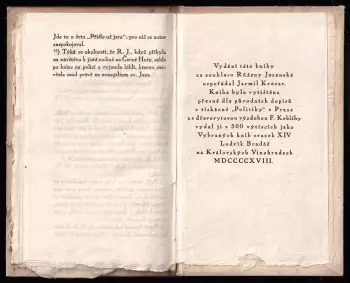 Jde tu o črtu „Přišlo už jaro", pro niž se autor
nespokojoval.
¹²) Týká se okolnosti, že R. J., když přibyla
na návštěvu k jisté rodině na Černé Hoře, sáhla
po knize na polici a vyjmula bibli, kterou ote-
vřela snad právě na evangelium sv. Jana.
Vydání této knihy
za souhlasu Růženy Jesenské
uspořádal Jarmil Krecar.
Kniha byla vytištěna
přesně dle původních dopisů
v tiskárně „Politiky" v Praze
se dřevorytovou výzdobou F. Koblihy
vydal ji v 500 výtiscích jako
Vybraných knih svazek XIV
Ludvík Bradáč
na Královských Vinohradech
MDCCCCXVIII.